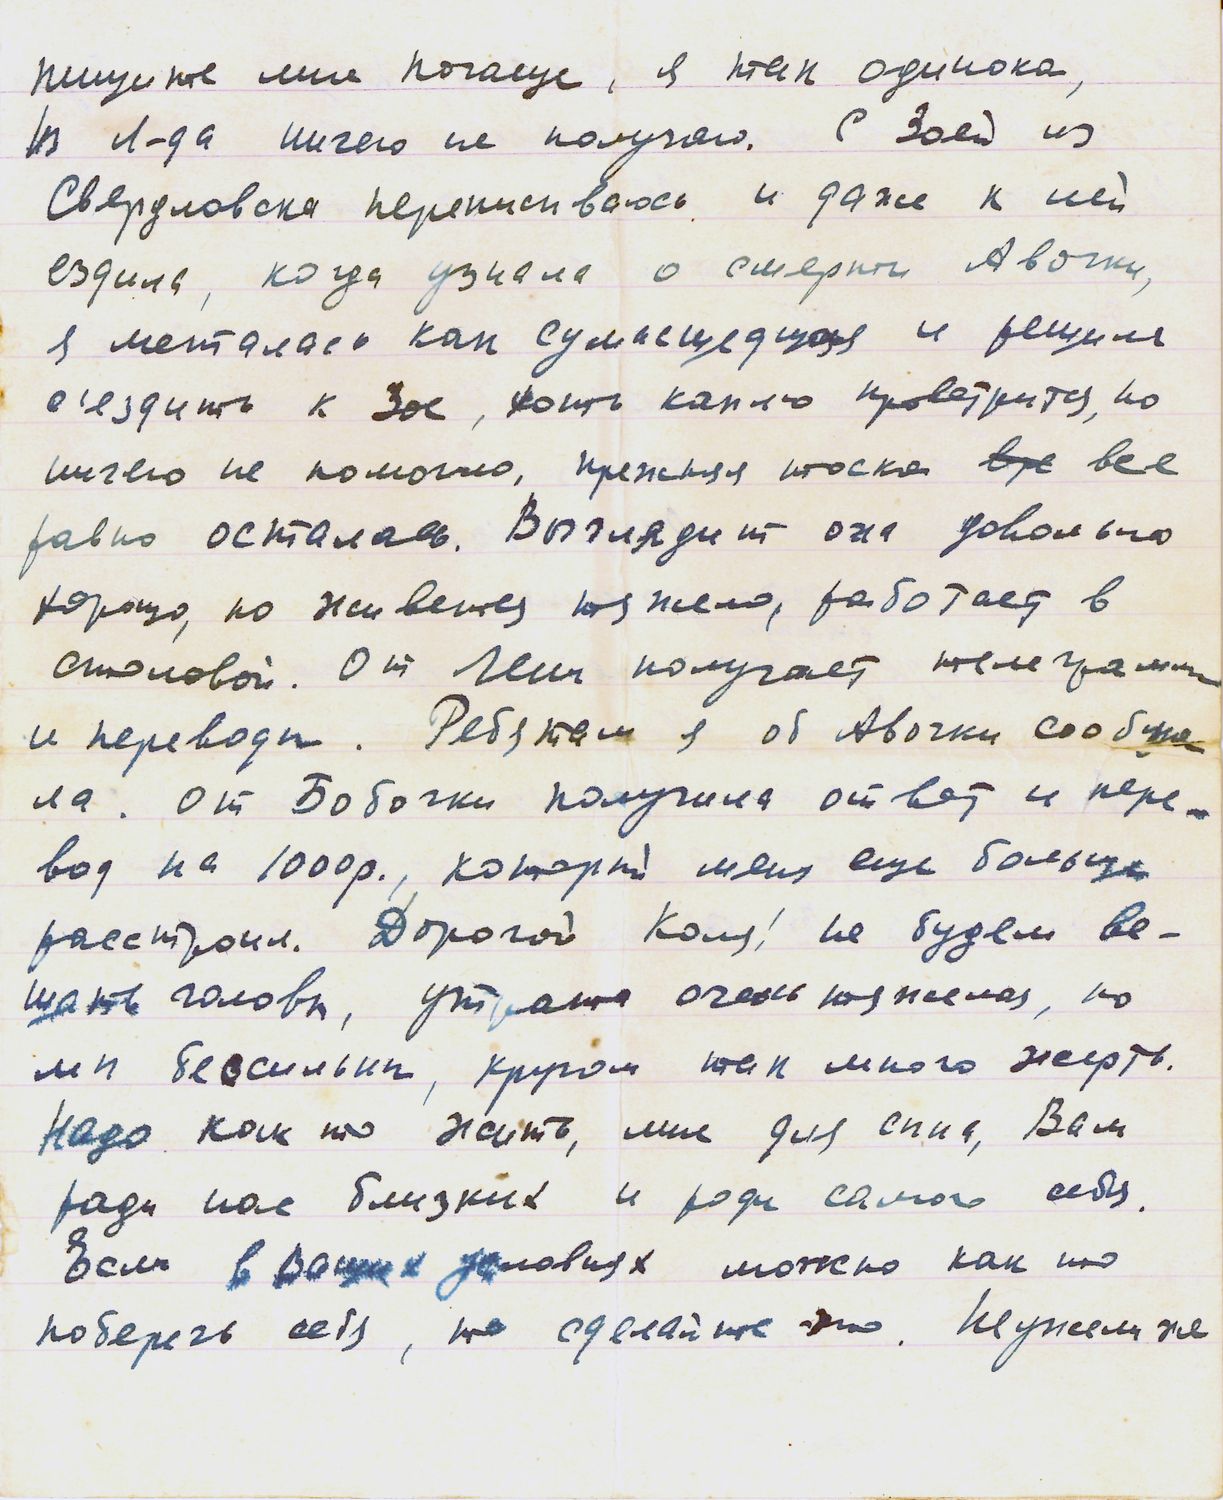 пишите мне почаще, я так одинока,
Из Л-да ничего не получаю. С Зоей из
Свердловска переписываюсь и даже к ней
ездила, когда узнала о смерти Авочки,
я металась как сумасшедшая и решила
съездить к Зое, хоть каплю проветрится, но
ничего не помогло, прежняя тоска все все
равно осталась. Выглядит она довольно
хорошо, но живется тяжело, работает в
столовой. От Лени получает телеграммы
и переводы. Ребятам я об Авочки сообща-
ла. От Бобочки получила ответ и пере-
вод на 1000р., который меня еще больше
расстроил. Дорогой Коля! не будем ве-
шать головы, утрата очень тяжелая, но
мы бессильны, кругом так много жертв.
Надо как то жить, мне для сына, Вам
ради нас близких и ради самого себя.
Если в Ваших условиях можно как то
поберечь себя, то сделайте это. Неужели же